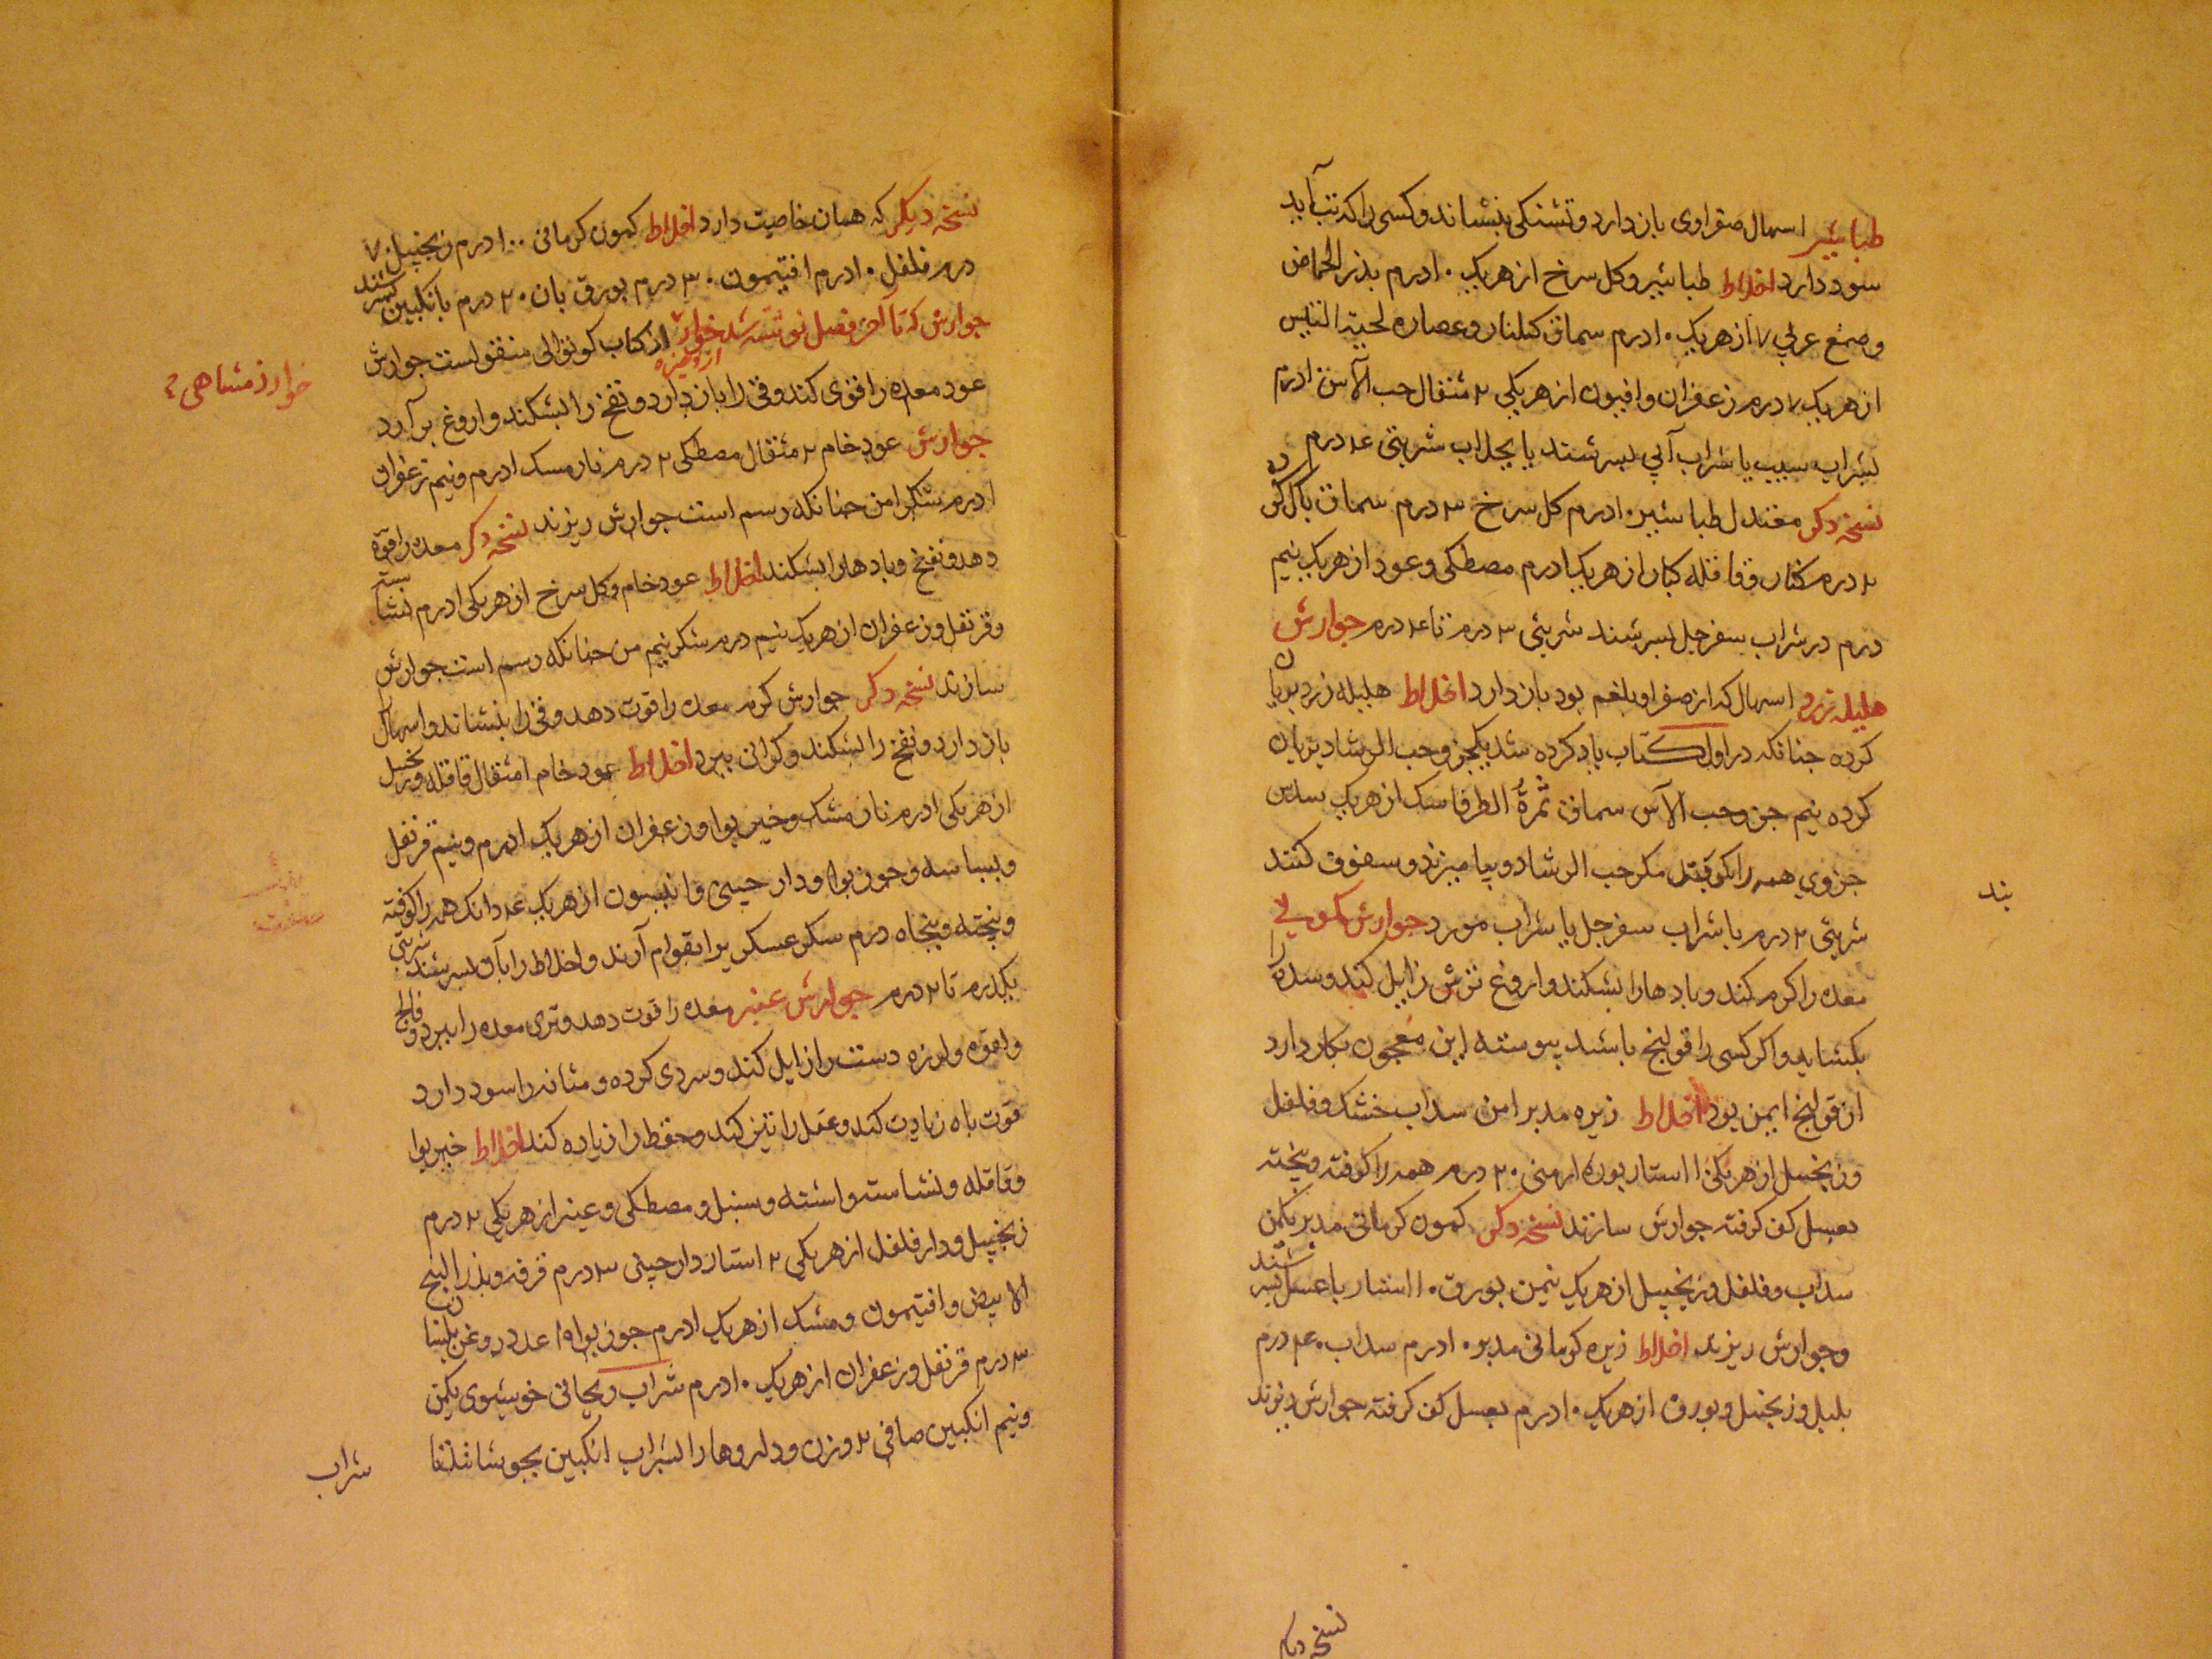 طباشیر اسهال صفراوی باز دارد و تشنکی بنشاند و کسی را که تب آید
سود دارد اخلاط طباشیر و کل سرخ از هر یک ۱۰ درم بذر الحماض
و صمغ عربی ۷ از هر یک ۱۰ درم سماق کلنار و عصاره لحیة التیس
از هر یک ۷ درم زعفران و افیون از هر یکی ۲ مثقال حب الآس ۱۰ درم
بشراب سیب یا شراب آبی بسرشند یا بجلاب شربتی ۴ درم
نسخه دکر معتدل طباشیر ۱۰ درم کل سرخ ۳ درم سماق پاک کن
۲ درم قاقله کبار از هر یک ۱ درم مصطکی و عود از هر یک نیم
درم در شراب سفرجل بسرشند شربتی ۳ درم تا ۴ درم جوارش
هلیله زرد اسهال که از صفرا و بلغم بود باز دارد اخلاط هلیله زرد بریان
کرده جنانکه در اول کتاب یاد کرده شد یکجزو حب الرشاد بریان
کرده نیم جزو حب الآس سماق ثمرة الطرفا سک از هر یک سدس
جزوی همه را بکوبند مکر حب الرشاد و بیامیزند و سفوف کنند
شربتی ۲ درم با شراب سفرجل یا شراب مورد جوارش کمونی
معده را کرم کند و بادها را بشکند و اروغ ترش زایل کند و سده را
بکشاید و اکر کسی را قولنج باشد پیوسته این معجون بکار دارد
از قولنج ایمن بود اخلاط زیره مدبر امن سداب خشک و فلفل
و زنجبیل از هر یکی ۱۱ استار بوره ارمنی ۲۰ درم همه را کوفته و بیخته
بعسل کف کرفته جوارش سازند نسخه دکر کمون کرمانی مدبر یکمن
سداب و فلفل و زنجبیل از هر یک نیمن بورق ۱۰ استار با عسل بسرشند
و جوارش ریزند اخلاط زیره کرمانی مدبر ۱۰ درم سداب ۴۰ درم
بلبل و زنجبیل و بورق از هر یک ۱۰ درم بعسل کف کرفته جوارش ریزند
بند
نسخه دیکر
نسخه دیکر که همان خاصیت دارد اخلاط کمون کرمانی ۱۰۰ درم زنجبیل ۷
درم فلفل ۱۰ درم افتیمون ۳۰ درم بورق نان ۲۰ درم بانکبین بسرشند
جوارش که تا آخر فصل نوشته شد از کتاب منقولست جوارش
عود معده را قوی کند و قی را باز دارد و نفخ را بشکند و اروغ برآرد
جوارش عود خام ۲ مثقال مصطکی ۲ درم نارمسک ۱ درم و نیم زعفران
۱ درم شکر امن جنانکه رسم است جوارش ریزند نسخه دکر معده را قوة
دهد و نفخ و بادها را بشکند اخلاط عود خام و کل سرخ از هر یکی ۱ درم نشاسته
و قرنفل و زعفران از هر یک نیم درم شکر نیم من جنانکه رسم است جوارش
سازند نسخه دکر جوارش کرم معده را قوت دهد و قی را بنشاند و اسهال
باز دارد و نفخ را بشکند و کرانی ببرد اخلاط عود خام ۱ مثقال قاقله و زنجبیل
از هر یکی ۱ درم نارمشک و خیربوا و زعفران از هر یک ۱ درم و نیم قرنفل
و بسباسه و جوزبوا و دارجینی و انیسون از هر یک ۴ دانک همه را کوفته
و بیخته و پنجاه درم شکر عسکر را بقوام آرند و اخلاط را بآن بسرشند شربتی
یکدرم تا ۲ درم جوارش عنبر معده را قوت دهد و تری معده را ببرد و فالج
و لقوه و لرزه دست را زایل کند و سردی کرده و مثانه را سود دارد
قوت باه زیادت کند و عقل را تیز کند و حفظ را زیاده کند اخلاط خیربوا
و قاقله و نشاسته و اشنه و سنبل و مصطکی و عنبر از هر یکی ۲ درم
زنجبیل و دارفلفل از هر یکی ۲ استار دارجینی ۳ درم قرفه و بذر البنج
الابیض و افتیمون و مشک از هر یک ۱ درم جوزبوا ۱۵ عدد روغن بلسان
۳ درم قرنفل و زعفران از هر یک ۱۰ درم شراب ریحانی خوشبوی یکمن
و نیم انکبین صافی ۲ وزن و داروها را بشراب انکبین بجوشانند تا
خوارزمشاهی
شراب